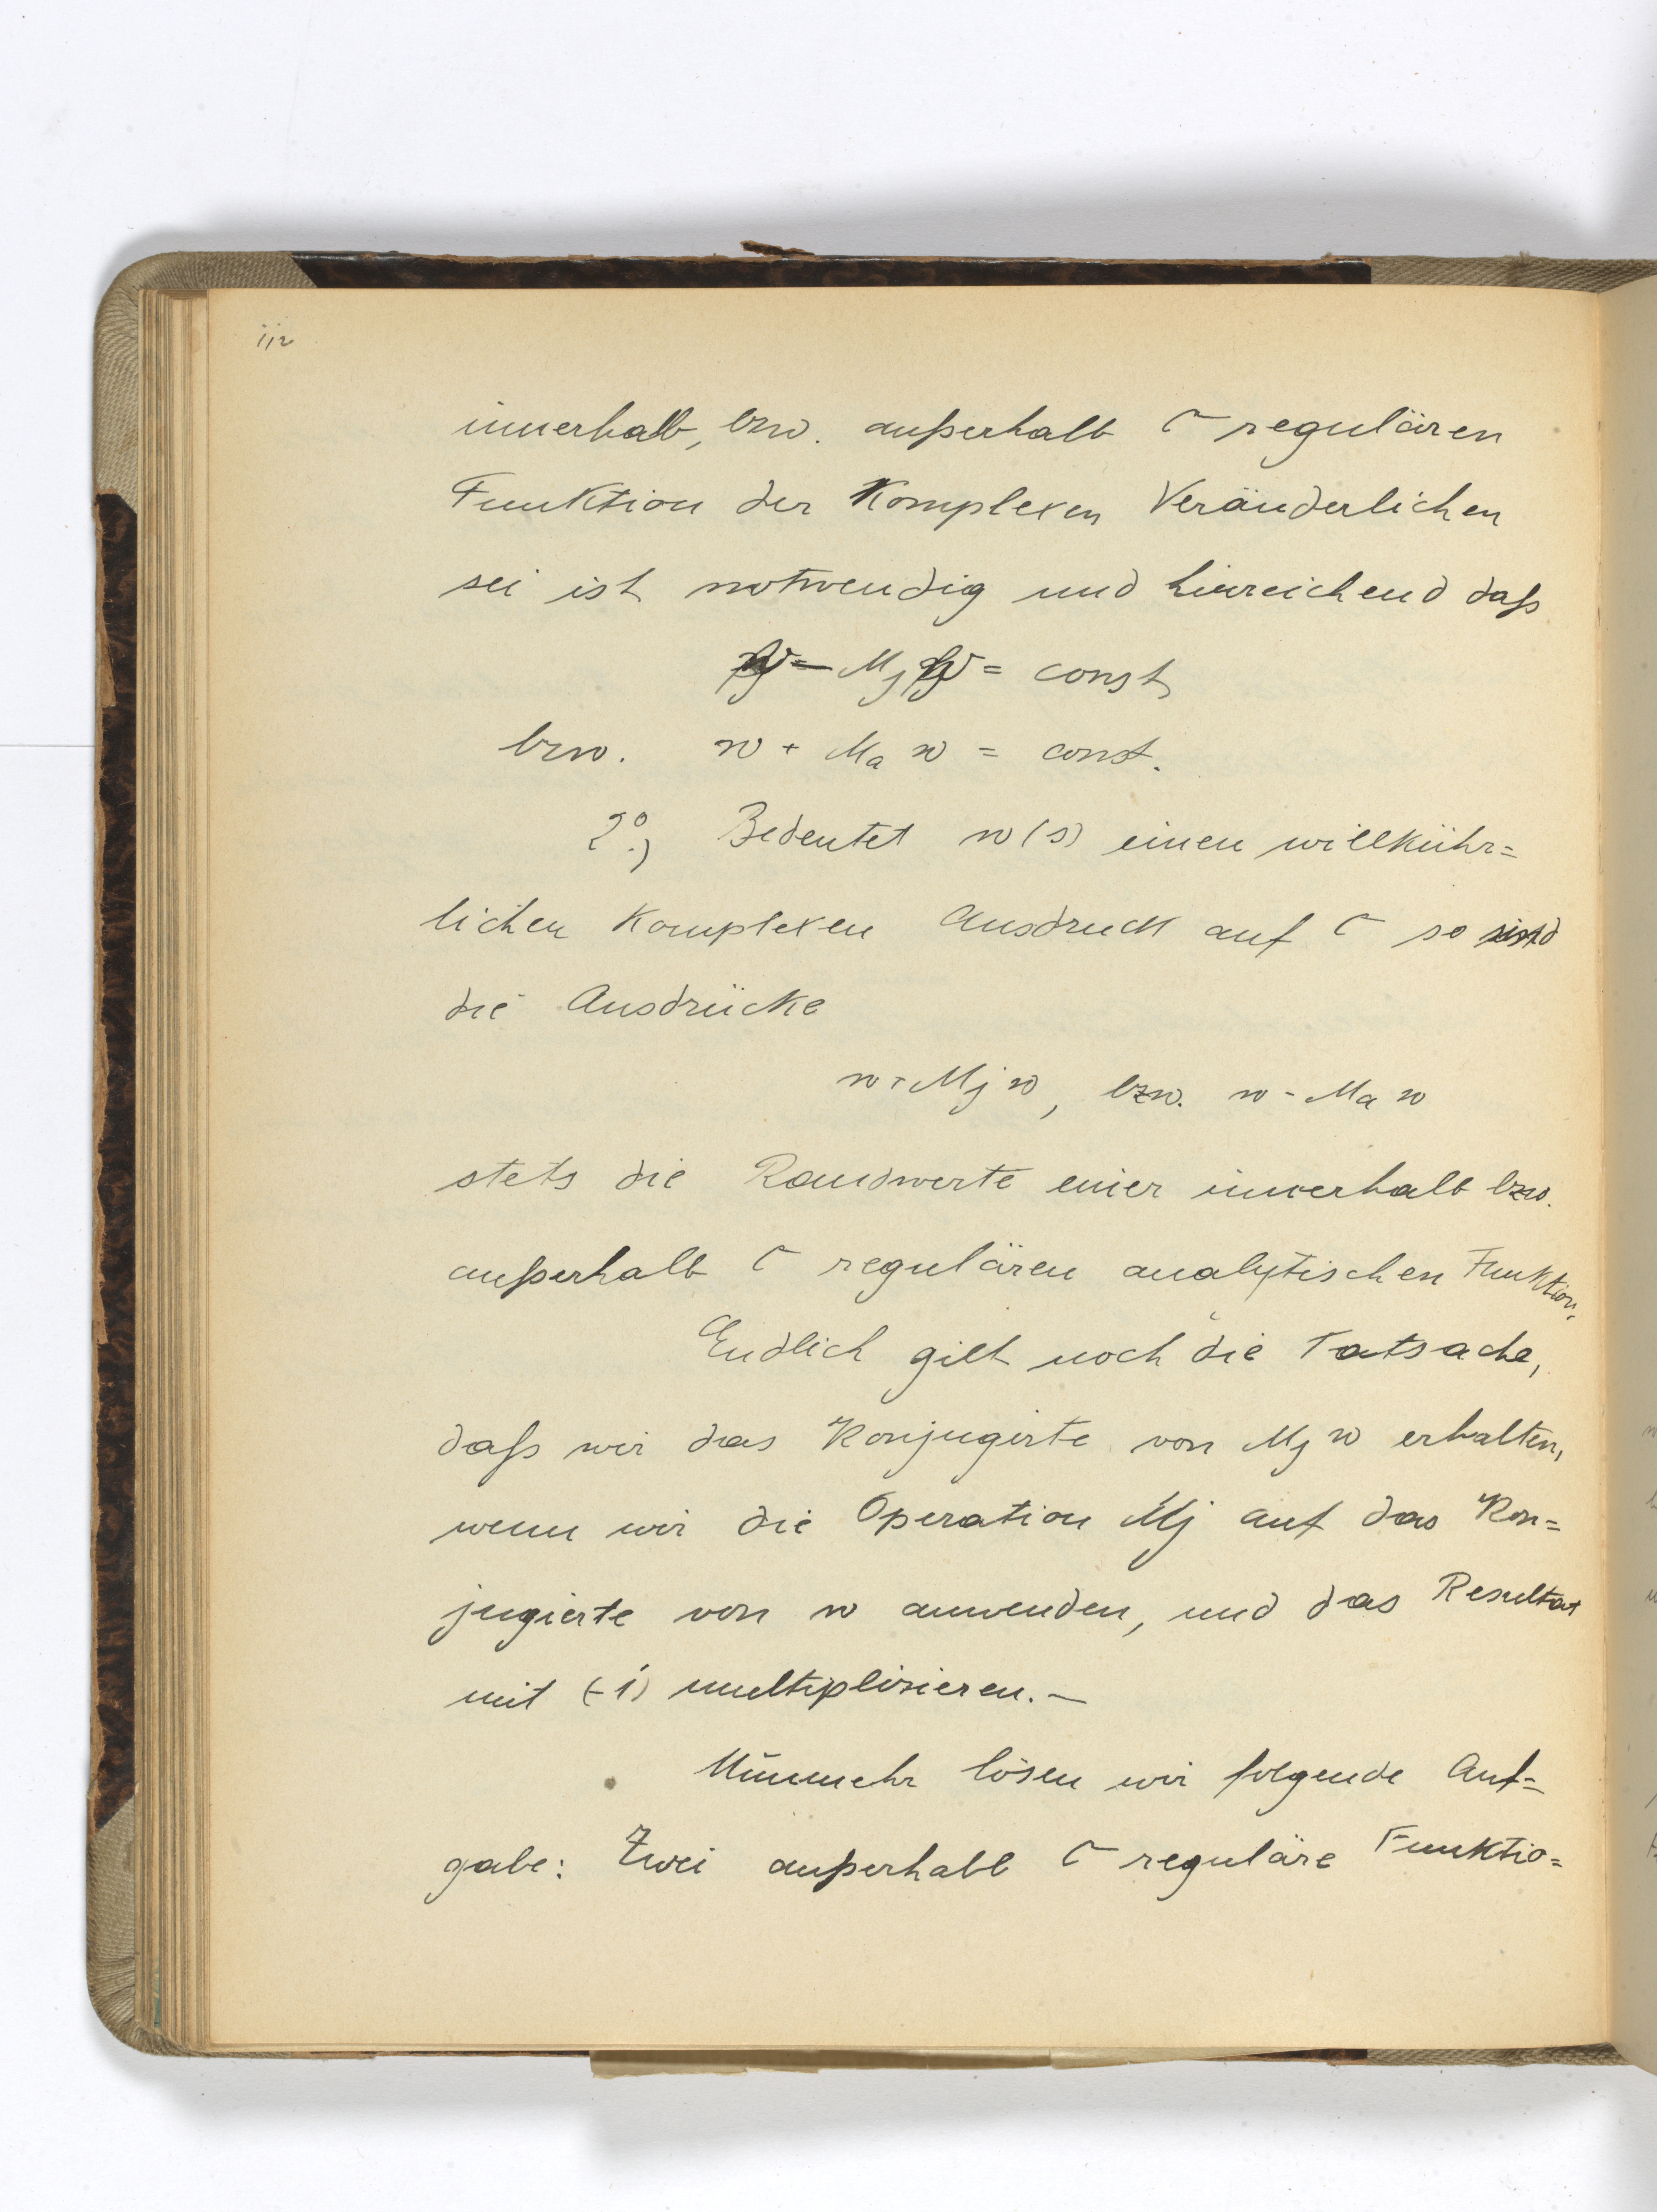 112
innerhalb, bzw. außerhalb C regulären
Funktion der Komplexen Veränderlichen
sei ist notwendig und hinreichend daß
w - Mj w = const,
bzw. w + Ma w = const.
2°.) Bedeutet w(s) einen willkühr=
lichen Komplexen Ausdruck auf C so sind
die Ausdrücke
w + Mj w, bzw. w - Ma w
stets die Randwerte einer innerhalb bzw.
außerhalb C regulären analytischen Funktion.
Endlich gilt noch die Tatsache,
daß wir das Konjugirte von Mj w erhalten,
wenn wir die Operation Mj auf das Kon=
jugierte von w anwenden, und das Resultat
mit (-1) multiplizieren. —
Nunmehr lösen wir folgende Auf=
gabe: Zwei außerhalb C reguläre Funktio=